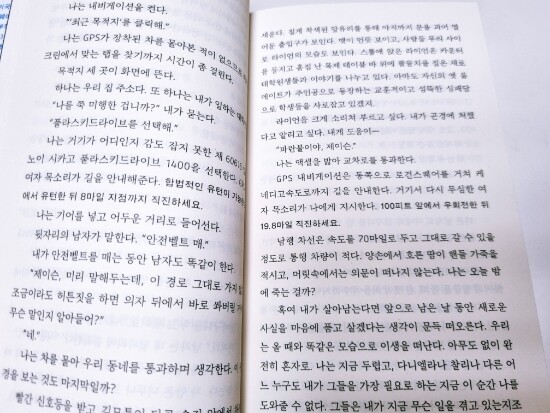 나는 내비게이션을 켠다.
"'최근 목적지'를 클릭해."
나는 GPS가 장착된 차를 몰아본 적이 없으므로
크린에서 맞는 탭을 찾기까지 시간이 좀 걸린다.
목적지 세 곳이 화면에 뜬다.
하나는 우리 집 주소다. 또 하나는 내가 일하는
"나를 쭉 미행한 겁니까?" 내가 묻는다.
"풀라스키드라이브를 선택해."
나는 거기가 어디인지 감도 잡지 못한 채 60616
노이 시카고 풀라스키드라이브 1400을 선택한다.
여자 목소리가 길을 안내해준다. 합법적인 유턴이
에서 유턴한 뒤 8마일 지점까지 직진하세요.
나는 기어를 넣고 어두운 거리로 들어선다.
뒷자리의 남자가 말한다. "안전벨트 매."
내가 안전벨트를 매는 동안 남자도 똑같이 한다.
"제이슨, 미리 말해두는데, 이 경로 그대로 가지
조금이라도 허튼짓을 하면 의자 뒤에서 바로 쏴버릴
무슨 말인지 알아들어?"
"네."
나는 차를 몰아 우리 동네를 통과하며 생각한다. 이
경을 보는 것도 마지막일까?
빨간 신호등을 받고
세운다. 짙게 착색된 앞유리를 통해 아직까지 문을 괴어 열
어둔 출입구가 보인다. 맷이 언뜻 보이고, 사람들 무리 사이
로 라이언의 모습도 보인다. 스툴에 앉은 라이언은 카운터
를 등지고 흠집 난 목재 테이블 바 위에 팔꿈치를 짚은 채로
대학원생들과 이야기를 나누고 있다. 아마도 자신의 옛 룸
메이트가 주인공으로 등장하는 교훈적이고 섬뜩한 실패담
으로 학생들을 사로잡고 있겠지.
라이언을 크게 소리쳐 부르고 싶다. 내가 곤경에 처했
다고 알리고 싶다. 내게 도움이―
"파란불이야, 제이슨."
나는 액셀을 밟아 교차로를 통과한다.
GPS 내비게이션은 동쪽으로 로건스퀘어를 거쳐 케
네디고속도로까지 길을 안내한다. 거기서 다시 무심한 여
자 목소리가 나에게 지시한다. 100피트 앞에서 우회전한 뒤
19.8마일 직진하세요.
남행 차선은 속도를 70마일로 두고 그대로 갈 수 있을
정도로 통행 차량이 적다. 양손에서 흐른 땀이 핸들 가죽을
적시고, 머릿속에서는 의문이 떠나지 않는다. 나는 오늘 밤
에 죽는 걸까?
혹여 내가 살아남는다면 앞으로 남은 날 동안 새로운
사실을 마음에 품고 살겠다는 생각이 문득 떠오른다. 우리
는 올 때와 똑같은 모습으로 이생을 떠난다. 아무도 없이 완
전히 혼자로. 나는 지금 두렵고, 다니엘라나 찰리나 다른 어
느 누구도 내가 그들을 가장 필요로 하는 지금 이 순간 나를
도와줄 수 없다. 그들은 내가 지금 무슨 일을 겪고 있는지조